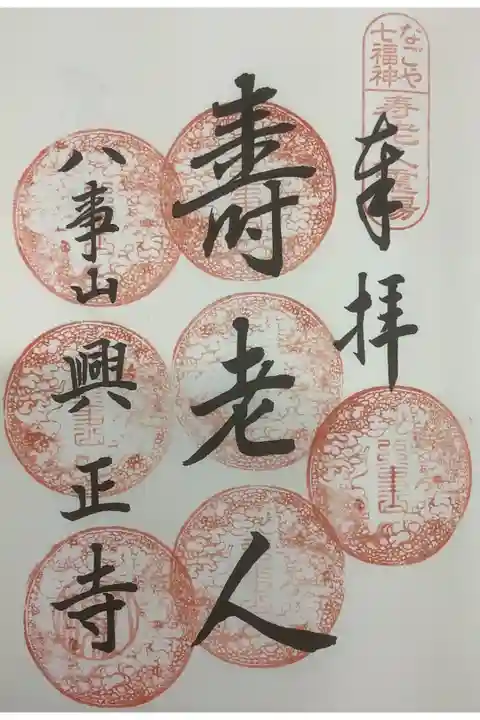 なごや
七福神
寿老人霊場
奉拝
寿老人
八事山
興正寺